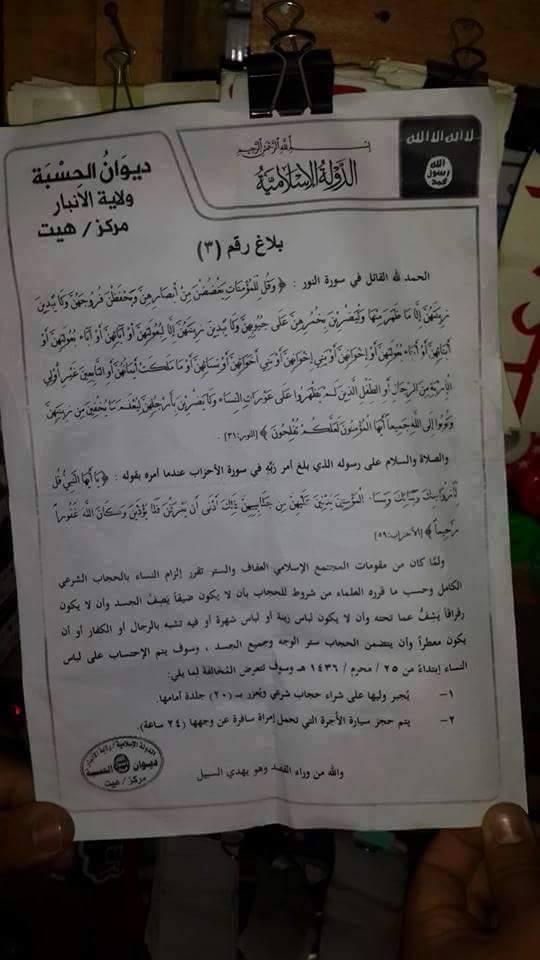 بسم الله الرحمن الرحيم
الدولة الإسلامية
لا إله إلا الله
الله
رسول
محمد
ديوان الحسبة
ولاية الأنبار
مركز / هيت
بلاغ رقم (٣)
الحمد لله القائل في سورة النور : ﴿ وَقُل لِّلْمُؤْمِنَاتِ يَغْضُضْنَ مِنْ أَبْصَارِهِنَّ وَيَحْفَظْنَ فُرُوجَهُنَّ وَلَا يُبْدِينَ
زِينَتَهُنَّ إِلَّا مَا ظَهَرَ مِنْهَا وَلْيَضْرِبْنَ بِخُمُرِهِنَّ عَلَى جُيُوبِهِنَّ وَلَا يُبْدِينَ زِينَتَهُنَّ إِلَّا لِبُعُولَتِهِنَّ أَوْ آبَائِهِنَّ أَوْ آبَاء بُعُولَتِهِنَّ أَوْ
أَبْنَائِهِنَّ أَوْ أَبْنَاء بُعُولَتِهِنَّ أَوْ إِخْوَانِهِنَّ أَوْ بَنِي إِخْوَانِهِنَّ أَوْ بَنِي أَخَوَاتِهِنَّ أَوْ نِسَائِهِنَّ أَوْ مَا مَلَكَتْ أَيْمَانُهُنَّ أَوِ التَّابِعِينَ غَيْرِ أُوْلِي
الْإِرْبَةِ مِنَ الرِّجَالِ أَوِ الطِّفْلِ الَّذِينَ لَمْ يَظْهَرُوا عَلَى عَوْرَاتِ النِّسَاء وَلَا يَضْرِبْنَ بِأَرْجُلِهِنَّ لِيُعْلَمَ مَا يُخْفِينَ مِن زِينَتِهِنَّ
وَتُوبُوا إِلَى اللَّهِ جَمِيعاً أَيُّهَا الْمُؤْمِنُونَ لَعَلَّكُمْ تُفْلِحُونَ ﴾ [النور:٣١] .
والصلاة والسلام على رسوله الذي بلغ أمر رَبِّهِ في سورة الأحزاب عندما أمره بقوله : ﴿ يَا أَيُّهَا النَّبِيُّ قُل
لِّأَزْوَاجِكَ وَبَنَاتِكَ وَنِسَاء الْمُؤْمِنِينَ يُدْنِينَ عَلَيْهِنَّ مِن جَلَابِيبِهِنَّ ذَلِكَ أَدْنَى أَن يُعْرَفْنَ فَلَا يُؤْذَيْنَ وَكَانَ اللَّهُ غَفُوراً
رَّحِيماً ﴾ [الأحزاب:٥٩]
ولمّا كان من مقومات المجتمع الإسلامي العفاف والستر تقرر إلزام النساء بالحجاب الشرعي
الكامل وحسب ما قرره العلماء من شروط للحجاب بان لا يكون ضيقاً يَصِفُ الجسد وأن لا يكون
رقراقاً يَشِفُّ عما تحته وأن لا يكون لباس زينة أو لباس شهرة أو فيه تشبه بالرجال أو الكفار أو أن
يكون معطراً وأن يتضمن الحجاب ستر الوجه وجميع الجسد ، وسوف يتم الإحتساب على لباس
النساء إبتداءً من ٢٥ / محرم / ١٤٣٦ هـ وسوف تتعرض المُخالفة لما يلي:
١- يُجبر وليها على شراء حجاب شرعي ويُعزر بـ (٢٠) جلدة أمامها.
٢- يتم حجز سيارة الأجرة التي تحمل إمراة سافرة عن وجهها (٢٤ ساعة).
والله من وراء القصد وهو يهدي السبيل
الدولة الإسلامية / ولاية الأنبار
ديوان الحسبة
مركز / هيت